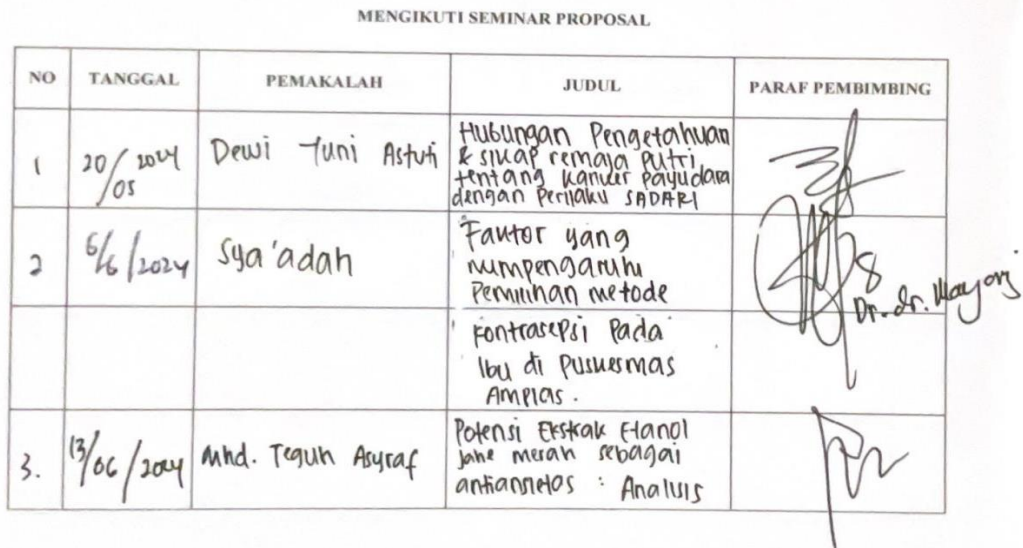 MENGIKUTI SEMINAR PROPOSAL
NO TANGGAL PEMAKALAH JUDUL PARAF PEMBIMBING
1 20/05 2024 Dewi Yuni Astuti
Hubungan Pengetahuan
& sikap remaja putri
tentang kanker payudara
dengan Perilaku SADARI
2 6/6/2024 Sya'adah
Faktor yang
mempengaruhi
Pemilihan metode
Kontrasepsi Pada
Ibu di Puskesmas
Amplas.
Dr. dr.
3. 13/06/2024 Mhd. Teguh Asyraf
Potensi Ekstrak Etanol
Jahe merah sebagai
: Analisis